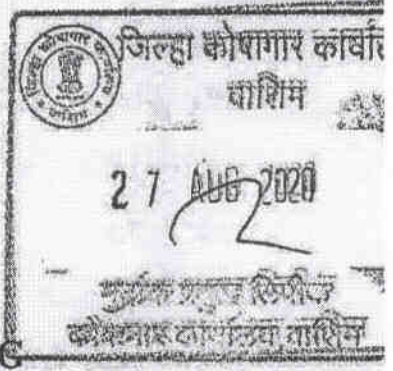 जिल्हा कोषागार कार्या
वाशिम
27 AUG 2020
मुद्रांक प्रमुख लिपीक
कोषागार कार्यालय वाशिम
G